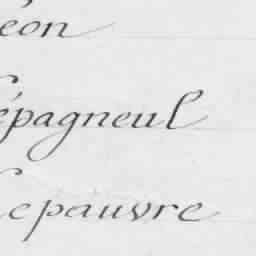 éon
épagneul
Lepauvre